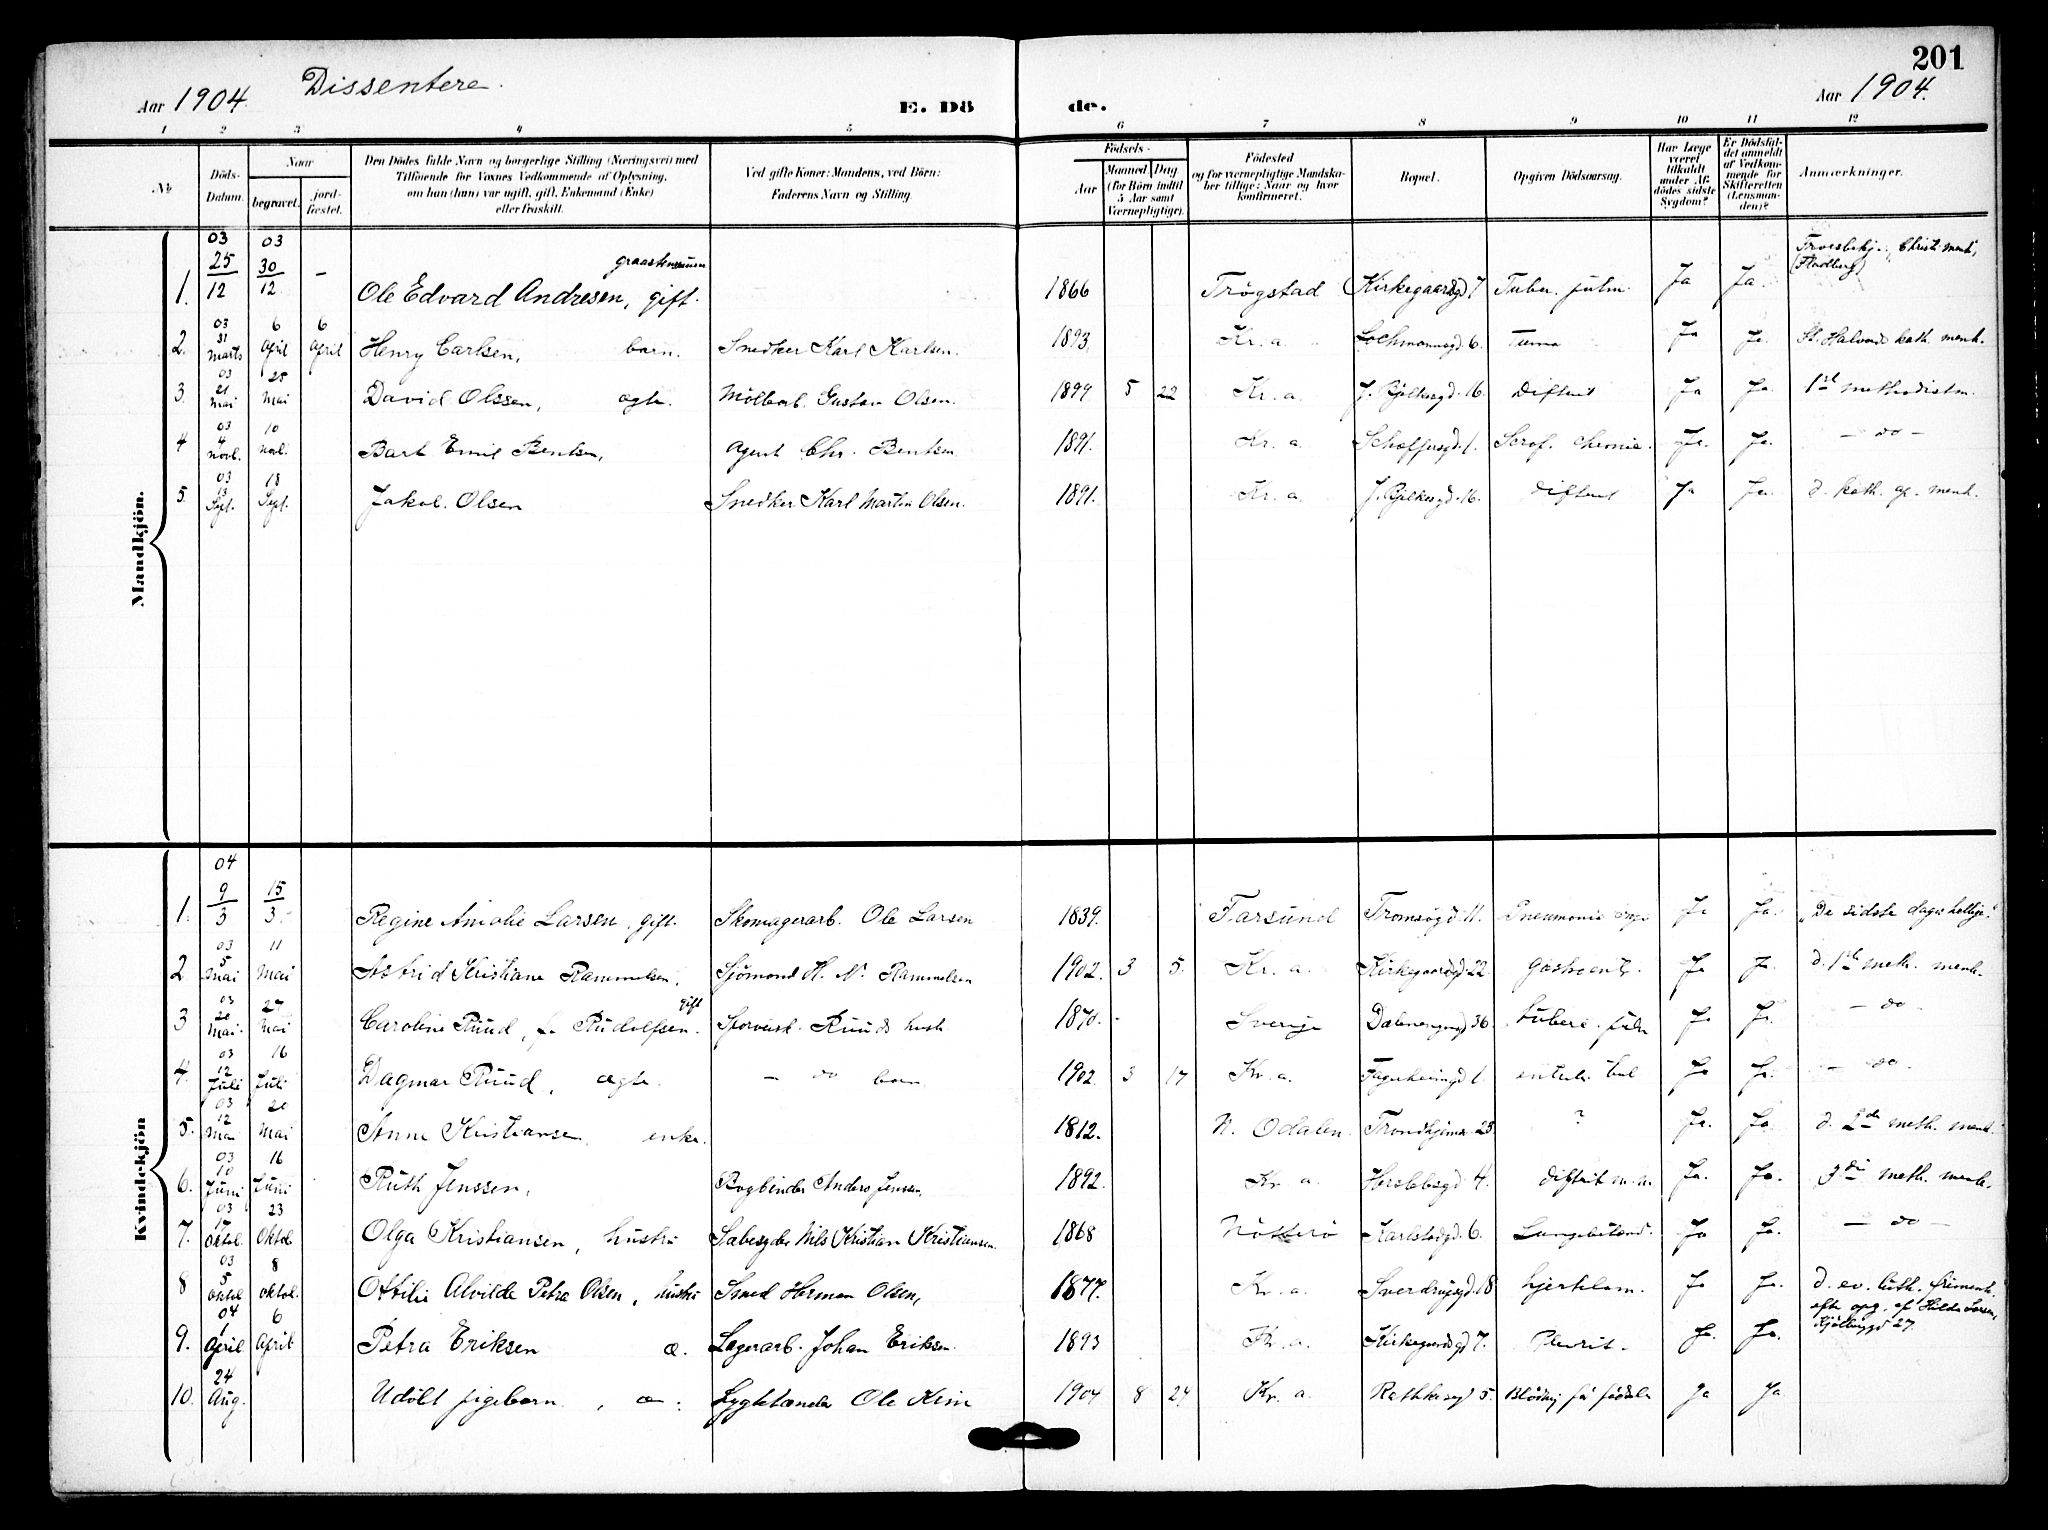 201
Aar 1904. Dissentere. E. Dö de. Aar 1904.
1 2 3 4 5 6 7 8 9 10 11 12
No
Döds-Datum.
Naar
begravet.
jord-fæstet.
Den Dödes fulde Navn og borgerlige Stilling (Næringsvei) med
Tilföiende for Voxnes Vedkommende af Oplysning,
om han (hun) var ugift, gift, Enkemand (Enke)
eller fraskilt.
Ved gifte Koner: Mandens, ved Börn:
Faderens Navn og Stilling.
Födsels-
Aar
Maaned Dag
(for Börn indtil
5 Aar samt
Værnepligtige).
Födested
og for værnepligtige Mandska-
ber tillige: Naar og hvor
konfirmeret.
Bopæl.
Opgiven Dödsaarsag.
Har Læge
været
tilkaldt
under Af-
dödes sidste
Sygdom?
Er Dödsfal-
det anmeldt
af Vedkom-
mende for
Skifteretten
(Lensman-
den)?
Anmærkninger.
Mandkjön.
1. 03 25/12 03 30/12 – Ole Edvard Andresen, gift. 1866 Trøgstad Kirkegaardsgd 7 Tuber. pulm. Ja Ja Christi menh. (Stadberg)
2. 03 31 Marts 6 April 6 April Henry Carlsen, barn. Snedker Karl Karlsen. 1893. Kr. a. Lochmannsgd. 6. Ja Ja. St. Halvards kath. menh.
3. 03 21 Mai 25 Mai David Olssen, ægte. Gustav Olsen. 1899 5 22 Kr. a. J. Bjelkesgd. 16. Difterit Ja Ja. 1ste methodistm.
4 03 4 Novb. 10 Novb. Emil Bentsen, Agent Chr. Bentsen 1891. Kr. a. Schaffersgd. 1. Scrof. chronic. Ja. Ja. – do –
5. 03 13 Sept. 18 Sept. Jakob. Olsen Snedker Karl Martin Olsen. 1891. Kr. a. J. Bjelkesgd. 16. Difterit Ja Ja. d. kath. ap. menh.
Kvindekjön
1. 04 9/3 15/3. Regine Amalie Larsen, gift. Skomagerarb. Ole Larsen 1839. Farsund Tromsøgd. 11. Pneumonia Ja Ja. "De sidste dages hellige."
2 03 5 Mai 11 Mai Astrid Kristiane Rammelsen, Sjömand H. M. Rammelsen 1902. 3 5. Kr. a. Kirkegaardsgd 22. Gastroent. Ja Ja. d. 1ste meth. menh.
3 03 20 Mai. 27 Mai Caroline Ruud, f. Rudolfsen. gift Ruuds hustr 1870. Sverige Dælenenggd 36. tuberc. pulm Ja Ja. – do
4. 03 12 Juli 16 Juli Dagmar Ruud, ægte. – do barn 1902. 3 17 Kr. a. Fagerheimgd 1. Ja Ja. – do.
5. 03 12 Mai 20 Mai Anne Kristiansen enke. 1812. N. Odalen. Trondhjemsv 25 ? Ja. Ja. d. 2den meth. menh.
6. 03 10 Juni 16 Juni Ruth Jenssen, Bogbinder Anders Jensen, 1892. Kr. a. Herslebsgd. 4. Difterit m. m Ja. Ja. 3die meth. menh.
7. 03 17 Oktob. 23 Oktob Olga Kristiansen, hustru Sæbesyder Nils Kristian Kristiansen. 1868 Nötterö Karlstadgd. 6. Lungebetænd. Ja Ja. – do –
8 03 5 Oktob 8 Oktob. Ottilie Alvilde Petra Olsen, hustru Smed Herman Olsen, 1877. Kr. a. Sverdrupsgd. 18 hjertelam. Ja Ja. d. ev. luth. frimenh.
9. 04 1 April 6 April Petra Eriksen æ. Lagerarb. Johan Eriksen. 1893 Kr. a. Kirkegaardsgd 7. Plevrit. Ja. Ja. efter opg. af Hilda Larsen, 27.
10. 24 Aug. Udöbt pigebarn, æ. Lygtetænder Ole Keim 1904 8 24 Kr. a. Rathkesgd 5. Ja Ja